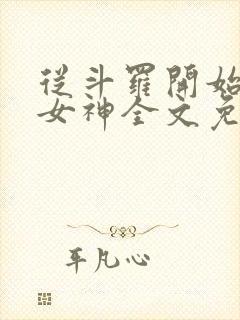 從斗羅開始
女神全文免
平凡心